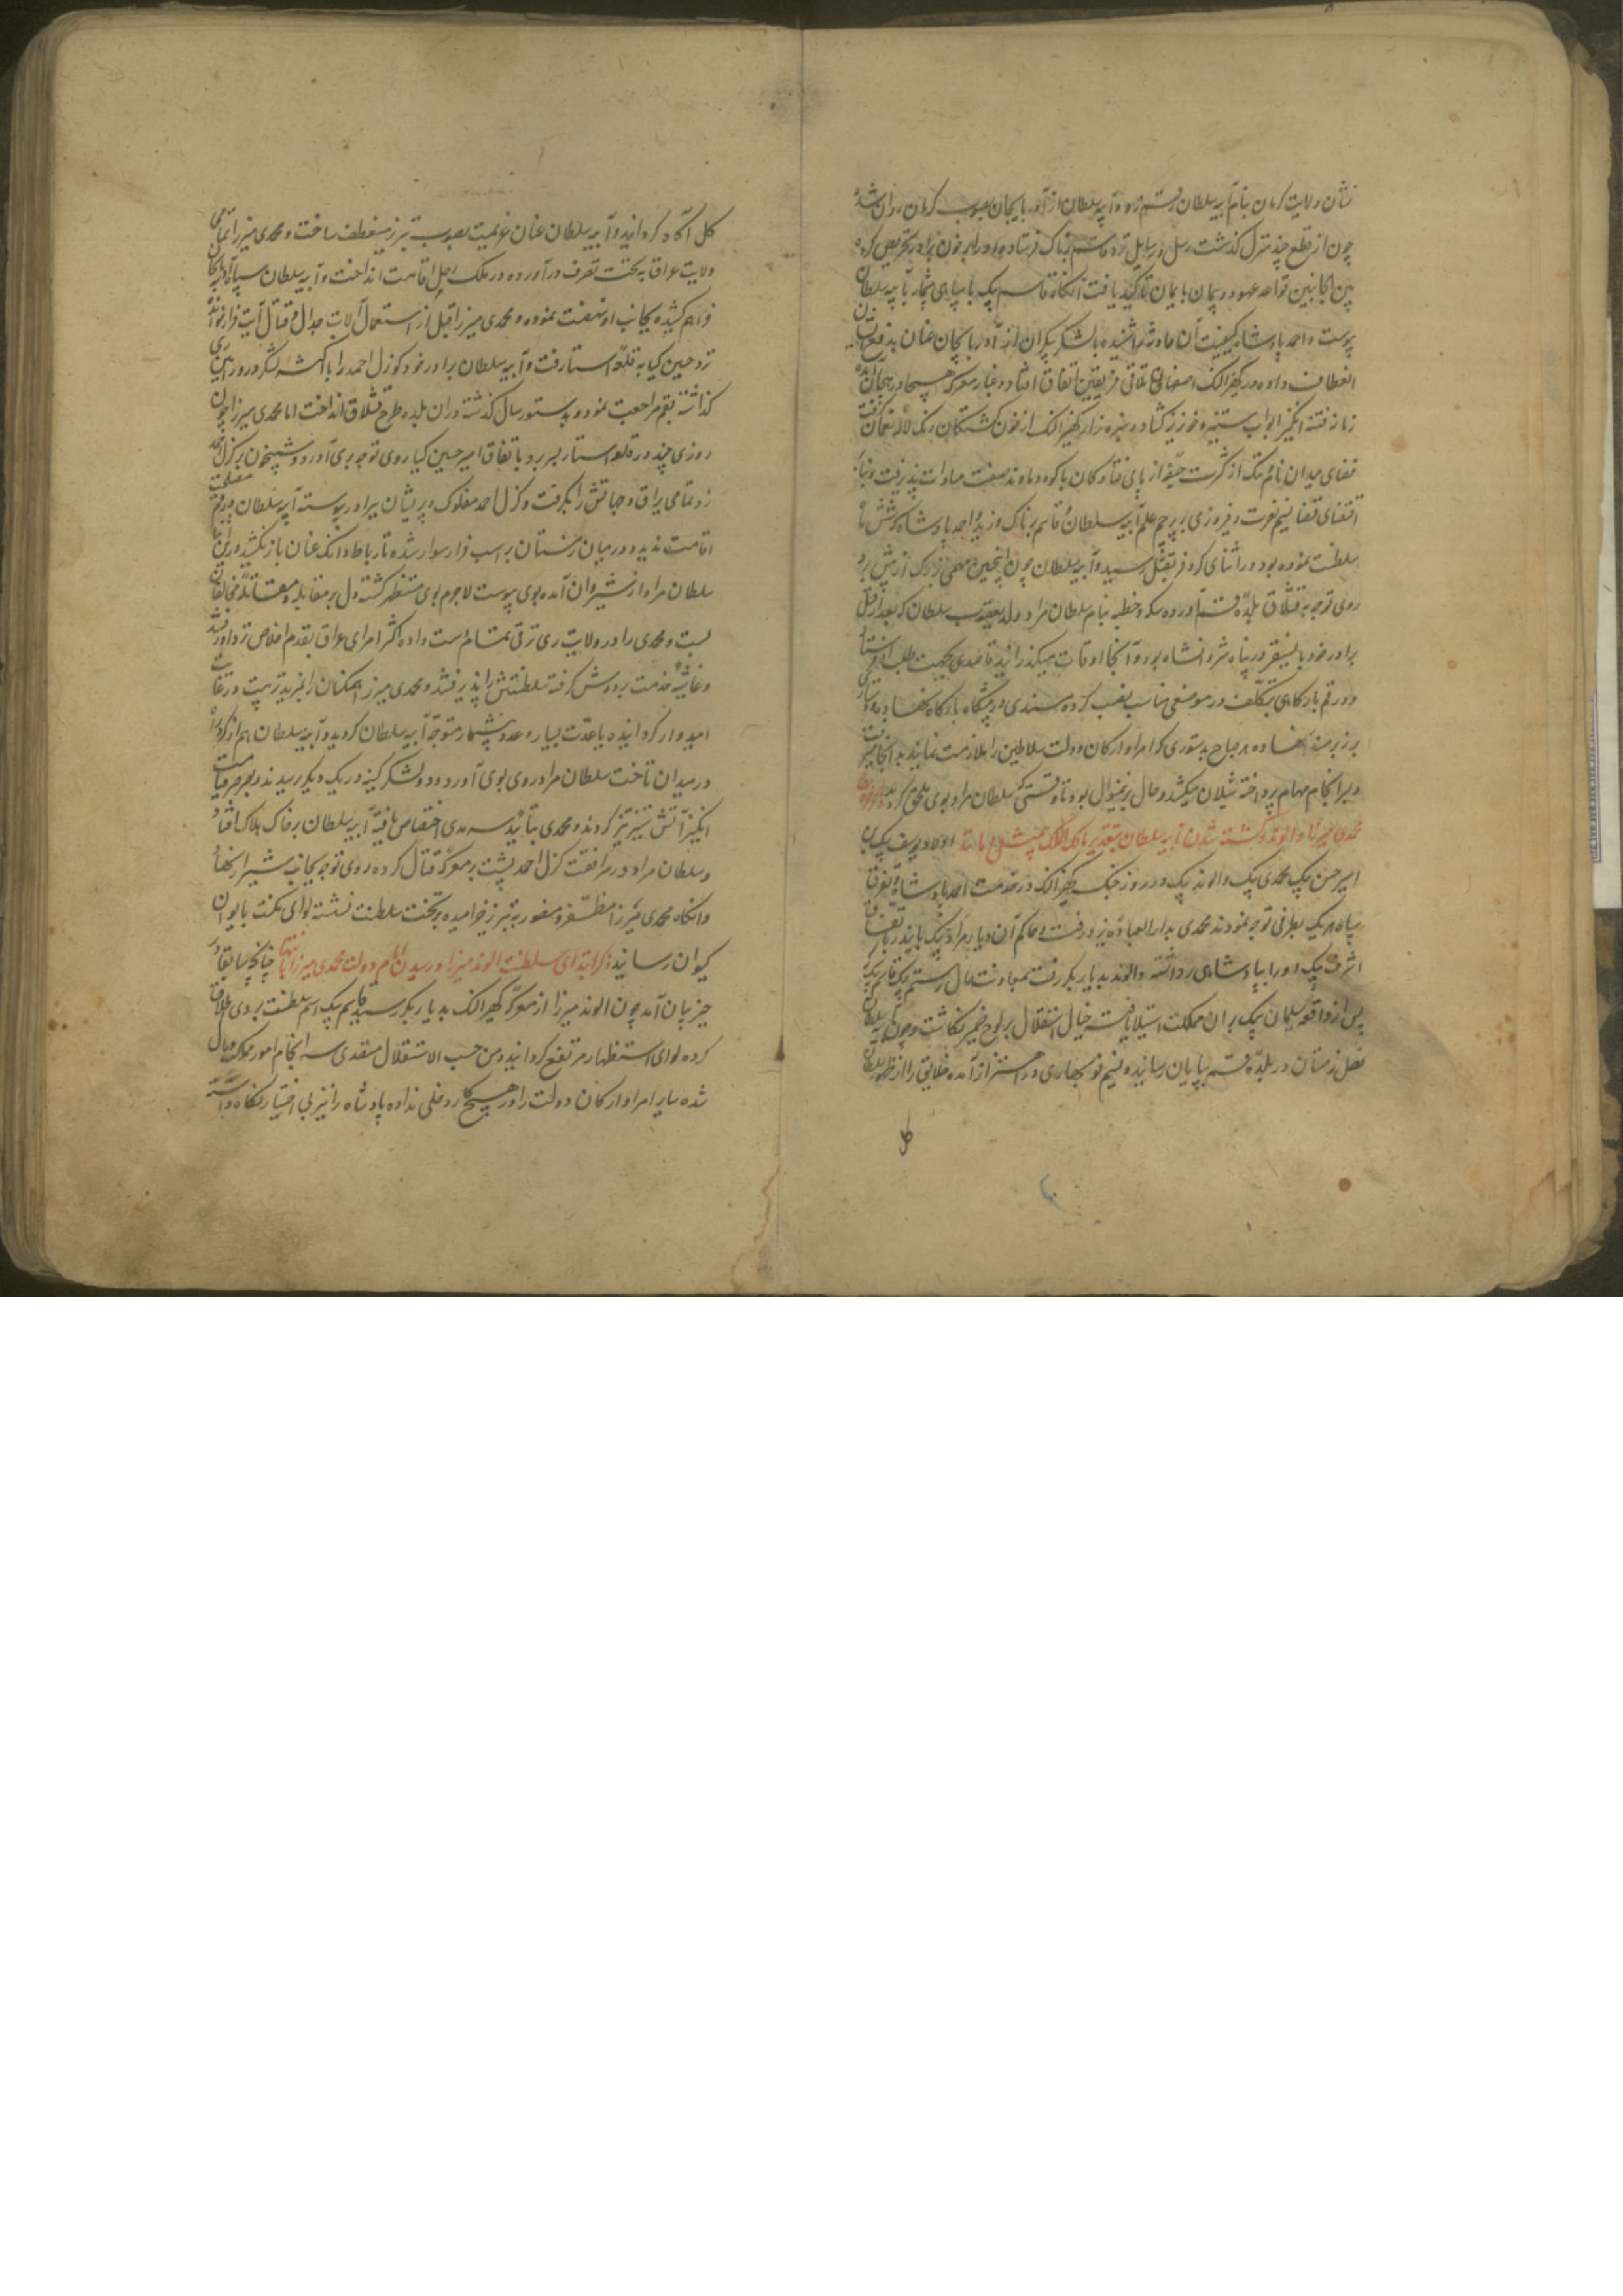 نشان ولایت کرمان بنام آیبه سلطان رستم زد و آیبه سلطان از آذربایجان بصوب کرمان روان شد
چون از قطع چند منزل گذشت رسل و رسایل نزد قاسم پرناک فرستاده او را بر خون برادر تحریص کرد
بین الجانبین قواعد عهود و پیمان بایمان تأکید یافت آنگاه قاسم بیک با سپاهی بآیبه سلطان
پیوست و احمد پادشاه کیفیت آن حادثه شنیده با لشکر بیکران از آذربایجان عنان بدفع
انعطاف داده در کهیز النک اصفهان تلاقی فریقین اتفاق افتاد و غبار معرکه هیجا در هیجان آمد
زمانه فتنه انگیز ابواب ستیز و خونریز گشاد و سبزه زار کهیز النک از خون کشتگان رنگ لاله نعمان گرفت
فضای میدان نام و ننگ از کثرت از پای فتادگان با کوه دماوند صفت مساوات پذیرفت و بنابر
اقتضای قضا نسیم نصرت و فیروزی بر پرچم علم آیبه سلطان و قاسم پرناک وزید و احمد پادشاه که شش ماه
سلطنت نموده بود در اثنای کر و فر بقتل رسید و آیبه سلطان چون اینچنین مهمی بزرگ از پیش برد
روی توجه به قشلاق بلده قم آورده سکه و خطبه بنام سلطان مراد ولد یعقوب سلطان که بعد از قتل
برادر خود بایسنقر در پناه شروانشاه بود و آنجا اوقات میگذرانید قاصدی بجهت طلب او فرستاد
و در قم بارگاهی بتکلف در موضعی مناسب نصب کرده مسندی در پیشگاه بارگاه نهاد
بر زبر مسند نهاده هر صباح بدستوری که امرا و ارکان دولت سلاطین را ملازمت نمایند بدانجا میرفت
و بسرانجام مهام پرداخته شیلان میکشید و حال برینمنوال بود تا وقتی که سلطان مراد بوی ملحق گردید
محمدی میرزا و الوند و کشته شدن آیبه سلطان بتقدیر مالک الملک اولاد یوسف بیک بن
امیر حسن بیک محمدی بیک و الوند بیک در روز جنگ کهیز النک در خدمت احمد پادشاه بودند
سپاه هر یک بطرفی توجه نمودند محمدی بدارالعباده یزد رفت و حاکم آن دیار مراد بیک بایندر باتفاق
اشرف بیک او را بپادشاهی برداشته و الوند بدیاربکر رفت بمعاونت
پس از واقعه سلیمان بیک بران مملکت استیلا یافته خیال استقلال بر لوح ضمیر نگاشت و چون آیبه سلطان
فصل زمستان در بلده قم بپایان رسانید و نسیم نوبهاری در اهتزاز آمده خلایق را از
کل آگاه گردانید و آیبه سلطان عنان عزیمت بصوب تبریز منعطف ساخت و محمدی میرزا تمامی
ولایت عراق به تحت تصرف درآورده در ملک رحل اقامت انداخت و آیبه سلطان سپاه آذربایجان
فراهم کشیده بجانب او نهضت نموده و محمدی میرزا قبل از استعمال آلات جدال و قتال آیت فرار خواند
نزد حسین کیا به قلعه استا رفت و آیبه سلطان برادر خود کوزل احمد را با اکثر لشکر در ورامین ری
گذاشته بقم مراجعت نمود و بدستور سال گذشته در آن بلده طرح قشلاق انداخت اما محمدی میرزا چون
روزی چند در قلعه استا بسر برد باتفاق امیر حسین کیا روی توجه بری آورد و شبیخون بر کزل احمد
زد تمامی یراق و جهاتش را بگرفت و کزل احمد مفلوک و پریشان ببرادر پیوسته آیبه سلطان در قم مصلحت
اقامت ندید و در میان زمستان بر اسب فرار سوار شده تا رباط دانک عنان باز نکشید درین اثنا
سلطان مراد از شیروان آمده بوی پیوست لاجرم بوی مستظهر گشته دل بر مقابله و مقاتله مخالفان
بست و محمدی را در ولایت ری ترقی تمام دست داده اکثر امرای عراق بقدم اخلاص نزد او رفتند
و غاشیه خدمت بر دوش گرفته سلطنتش را پذیرفتند و محمدی میرزا همگنان را بمزید تربیت و رعایت
امیدوار گردانیده با عدت بسیار و عدد بیشمار متوجه آیبه سلطان گردید و آیبه سلطان هم از گرد راه
در میدان تاخت سلطان مراد روی بوی آورد و دو لشکر کینه ور بیک دیگر رسیدند
انگیز آتش ستیز تیز کردند و محمدی بتأیید سرمدی اختصاص یافته آیبه سلطان بر خاک هلاک افتاد
و سلطان مراد در مرافقت کزل احمد پشت بر معرکه قتال کرده روی توجه بجانب شیراز نهاد
و آنگاه محمدی میرزا مظفر و منصور به تبریز خرامیده بر تخت سلطنت نشسته لوای مکنت بایوان
کیوان رسانید ذکر ابتدای سلطنت الوند میرزا و رسیدن ایام دولت محمدی میرزا بانتها چنانچه سابقا در
حیز بیان آمد چون الوند میرزا از معرکه کهیز النک بدیاربکر رسید قاسم بیک اسم سلطنت بر وی اطلاق
کرده لوای استظهار مرتفع گردانید و من حیث الاستقلال متصدی سرانجام امور مملکت و مال
شده سایر امرا و ارکان دولت را در هیچ کار دخلی نداده پادشاه را نیز بی اختیار نگاه داشته